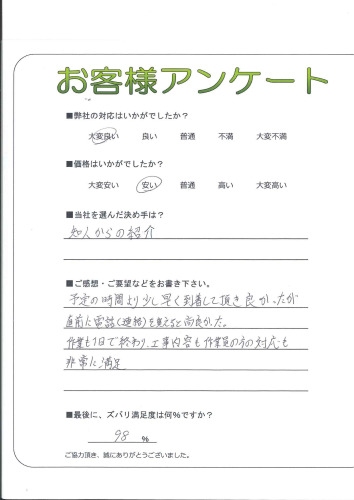 お客様アンケート
■弊社の対応はいかがでしたか？
大変良い 良い 普通 不満 大変不満
■価格はいかがでしたか？
大変安い 安い 普通 高い 大変高い
■当社を選んだ決め手は？
知人からの紹介
■ご感想・ご要望などをお書き下さい。
予定の時間より少し早く到着して頂き良かったが
直前に電話(連絡)を貰えると尚良かった。
作業も1日で終わり、工事内容も作業員の方の対応も
非常に満足
■最後に、ズバリ満足度は何％ですか？
98 ％
ご協力頂き、誠にありがとうございました。